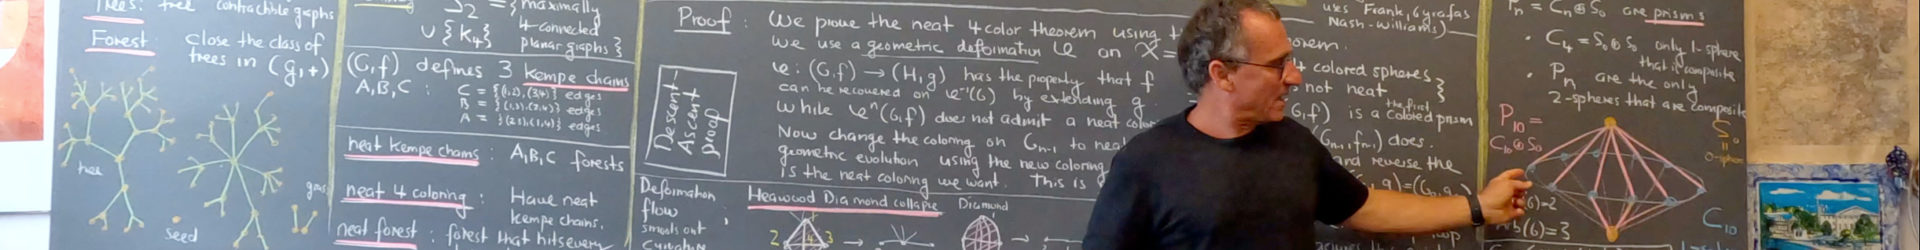 Trees: tree contractible graphs
Forest: close the class of
trees in (G,+)
tree
seed
S2 = { maximally
∪ {K4} 4-connected
planar graphs }
(G,f) defines 3 Kempe chains
A,B,C : C = {(1,2),(3,4)} edges
B = {(1,3),(2,4)} edges
A = {(2,3),(1,4)} edges
neat Kempe chains : A,B,C forests
neat 4 coloring : Have neat
Kempe chains.
neat forest : forest that hits every
Proof : We prove the neat 4 color theorem using
we use a geometric deformation φ on X =
φ : (G,f) → (H,g) has the property that f
can be recovered on φ⁻¹(G) by extending g.
While φⁿ(G,f) does not admit a neat
Now change the coloring on Gn-1 to
geometric evolution using the new coloring
is the neat coloring we want. This is
Descent-
Ascent
proof
Deformation
flow
smooths out
Curvature
Heawood Diamond collapse
Diamond
2 4 3
uses Frank, Gyrafas
Nash-Williams)
colored spheres
not neat }
(G,f) is a colored prism
the first
(Gn-1,fn-1) does.
and reverse the
Pn = Cn ⊕ S0 are prisms
• C4 = S0 ⊕ S0 only 1-sphere
that is composite
• Pn are the only
2-spheres that are composite
P10 =
C10 ⊕ S0
S0
=
0-sphere
C10
(6)=2
b(6)=3